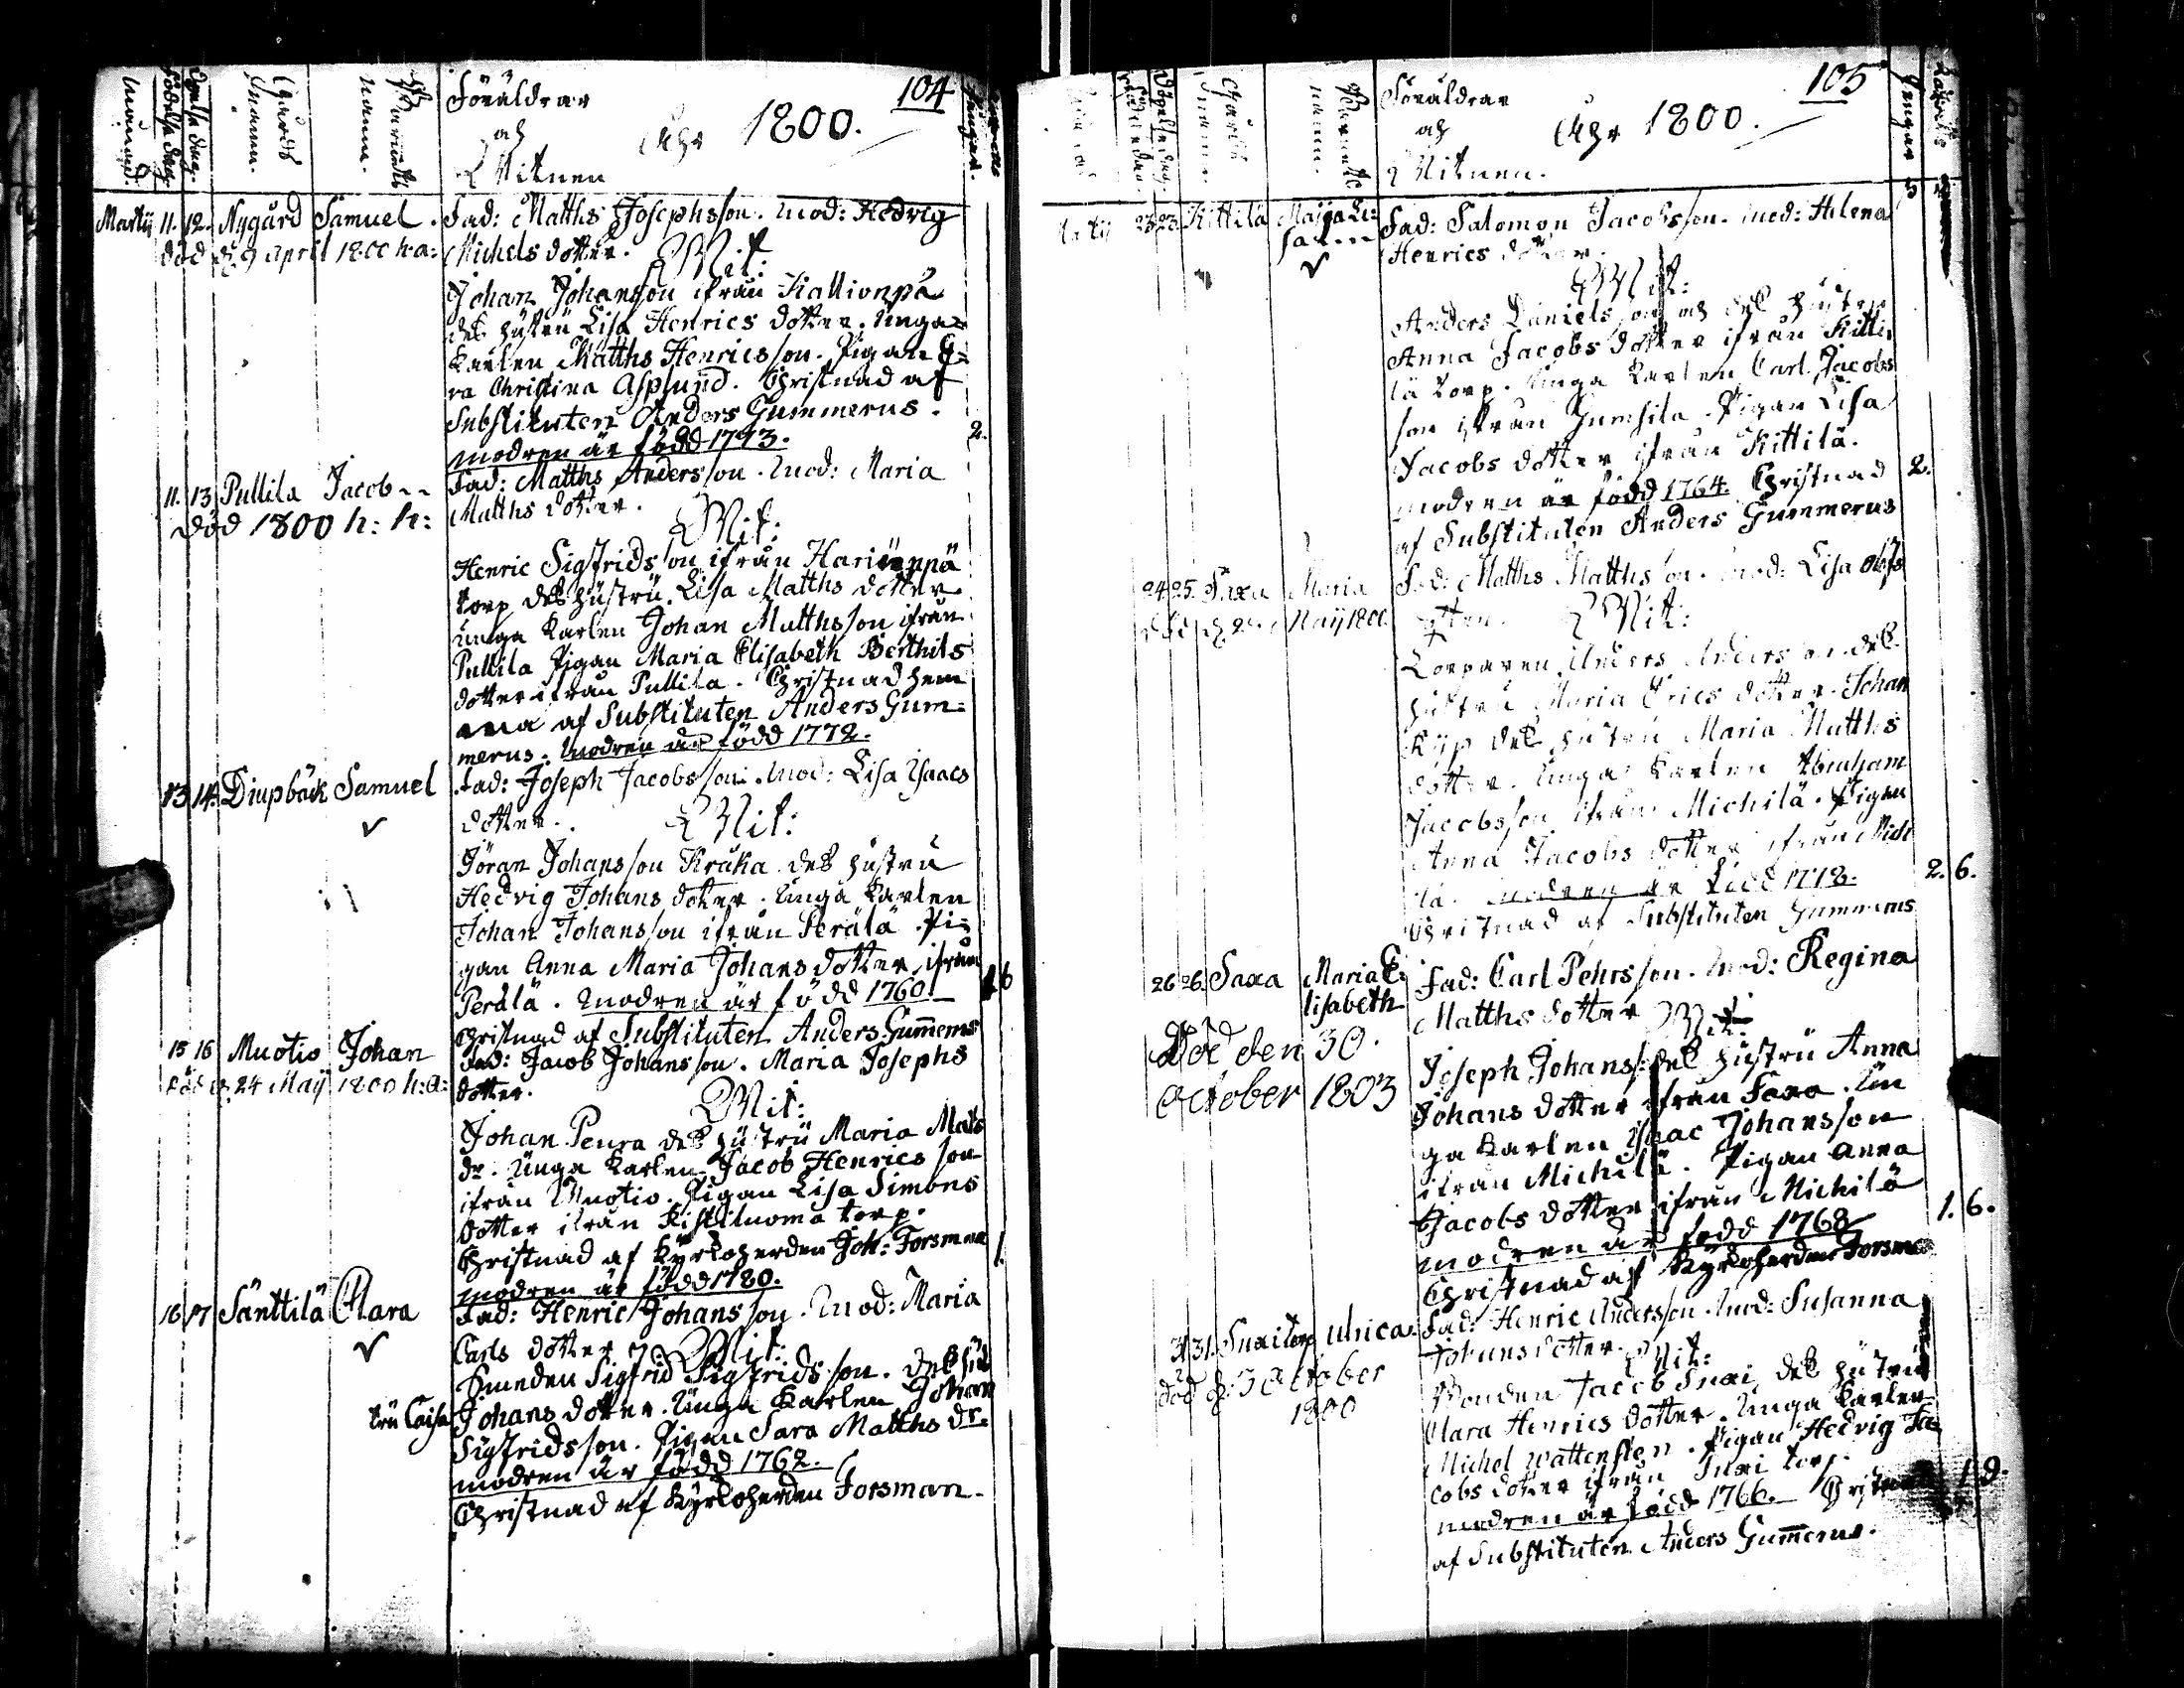 månad.
Födelse dag.
Döpelse dag.
Gårds
Namn.
Barnets
namn.
Föräldrar
och
Witnen
Åhr 1800.
104
Martij 11. 12. Nygård Samuel. Fad: Matths Josephsson. Mod: Hedvig
död d. 9 April 1800 h:a: Michels dotter. Wit:
Johan Johansson ifrån Kallionpä
des hustru Lisa Henrics dotter. Unga
Karlen Matths Henricsson. Pigan
Christina Asplund. Christnad af
Substituten Anders Gummerus.
modren är född 1773. 2.
11. 13 Pullila Jacob Fad: Matths Andersson. Mod: Maria
död 1800 h: h: Matths dotter. Wit:
Henric Sigfridsson ifrån
torp des hustru Lisa Matths dotter
Unga Karlen Johan Matthsson ifrån
Pullila Pigan Maria Elisabeth Berthils
dotter ifrån Pullila. Christnad hem
ma af Substituten Anders Gum=
merus. modren är född 1772.
13 14. Diupbäck Samuel Fad: Joseph Jacobsson. Mod: Lisa Isaacs
dotter. Wit:
Jöran Johansson Kråka des hustru
Hedvig Johans dotter. Unga Karlen
Johan Johansson ifrån Perälä. Pi=
gan Anna Maria Johans dotter ifrån
Perälä. modren är född 1760.
Christnad af Substituten Anders Gummerus
15 16 Muotio Johan Fad: Jacob Johansson. Maria Josephs
död d. 24 Maij 1800 h:a: dotter. Wit:
Johan Peura des hustru Maria Mats
dr. Unga Karlen Jacob Henricsson
ifrån Muotio. Pigan Lisa Simons
dotter ifrån torp.
Christnad af Kyrkoherden Joh: Forsman 1.
modren är född 1780.
16 17 Sänttilä Clara Fad: Henric Johansson. Mod: Maria
Carls dotter Wit:
Smeden Sigfrid Sigfridsson. des hus
tru Caisa Johans dotter. Unga Karlen Johan
Sigfridsson. Pigan Sara Matths dr.
modren är född 1762.
Christnad af Kyrkoherden Forsman.
Gårds
Namn.
Barnets
namn.
Föräldrar
och
Witnen.
Åhr 1800.
105
23 23 Kittilä Maija Li= Fad: Salomon Jacobsson. Mod: Helena
Henrics dotter.
Wit:
Anders Danielsson och des hustru
Anna Jacobs dotter ifrån Kitti
lä torp. Unga Karlen Carl Jacobs
son ifrån Pigan Lisa
Jacobs dotter ifrån Kittilä.
modren är född 1764. Christnad 2.
af Substituten Anders Gummerus
24 25. Saxa Maria Fad: Matths Matthsson. Mod: Lisa
Maij 1800 Wit:
Torparen Anders Andersson des
hustru Maria Erics dotter. Johan
des hustru Maria Matths
dotter. Unga Karlen Abraham
Jacobsson ifrån Michilä. Pigan
Anna Jacobs dotter ifrån Michi
lä. modren är född 2. 6.
Christnad af Substituten Gummerus
26 26. Saxa Maria E= Fad: Carl Pehrsson. Mod: Regina
lisabeth Matths dotter Wit:
Död den 30. Joseph Johans: des hustru Anna
October 1803 Johans dotter ifrån Saxa. Un
ga Karlen Isaac Johansson
ifrån Michilä. Pigan Anna
Jacobs dotter ifrån Michilä 1. 6.
modren är född 1768
Christnad af Kyrkoherden Forsman
31 31. Snaitorp Ulrica. Fad: Henric Andersson. Mod: Susanna
Johans dotter. Wit:
död d. 3 October
1800
Bonden Jacob Snai des hustru
Clara Henrics dotter. Unga Karlen
Michel Wattensten. Pigan Hedvig Ja=
cobs dotter ifrån Snai torp.
modren är född 1766. Christnad
af Substituten Anders Gummerus.